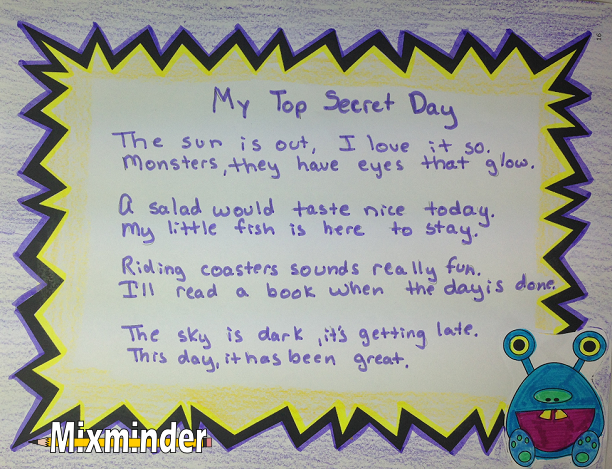 16
My Top Secret Day
The sun is out, I love it so.
Monsters, they have eyes that glow.
A salad would taste nice today.
My little fish is here to stay.
Riding coasters sounds really fun.
I'll read a book when the day is done.
The sky is dark, it's getting late.
This day, it has been great.
Mixminder